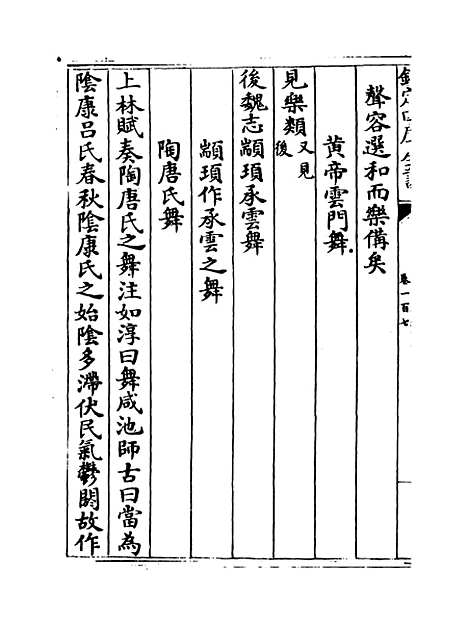 欽定四庫全書
卷一百七
聲容選和而樂備矣
黄帝雲門舞
見樂類又見後
後魏志顓頊承雲舞
顓頊作承雲之舞
陶唐氏舞
上林賦奏陶唐氏之舞注如淳曰舞咸池師古曰當為
陰康吕氏春秋陰康氏之始陰多滯伏民氣鬱閼故作